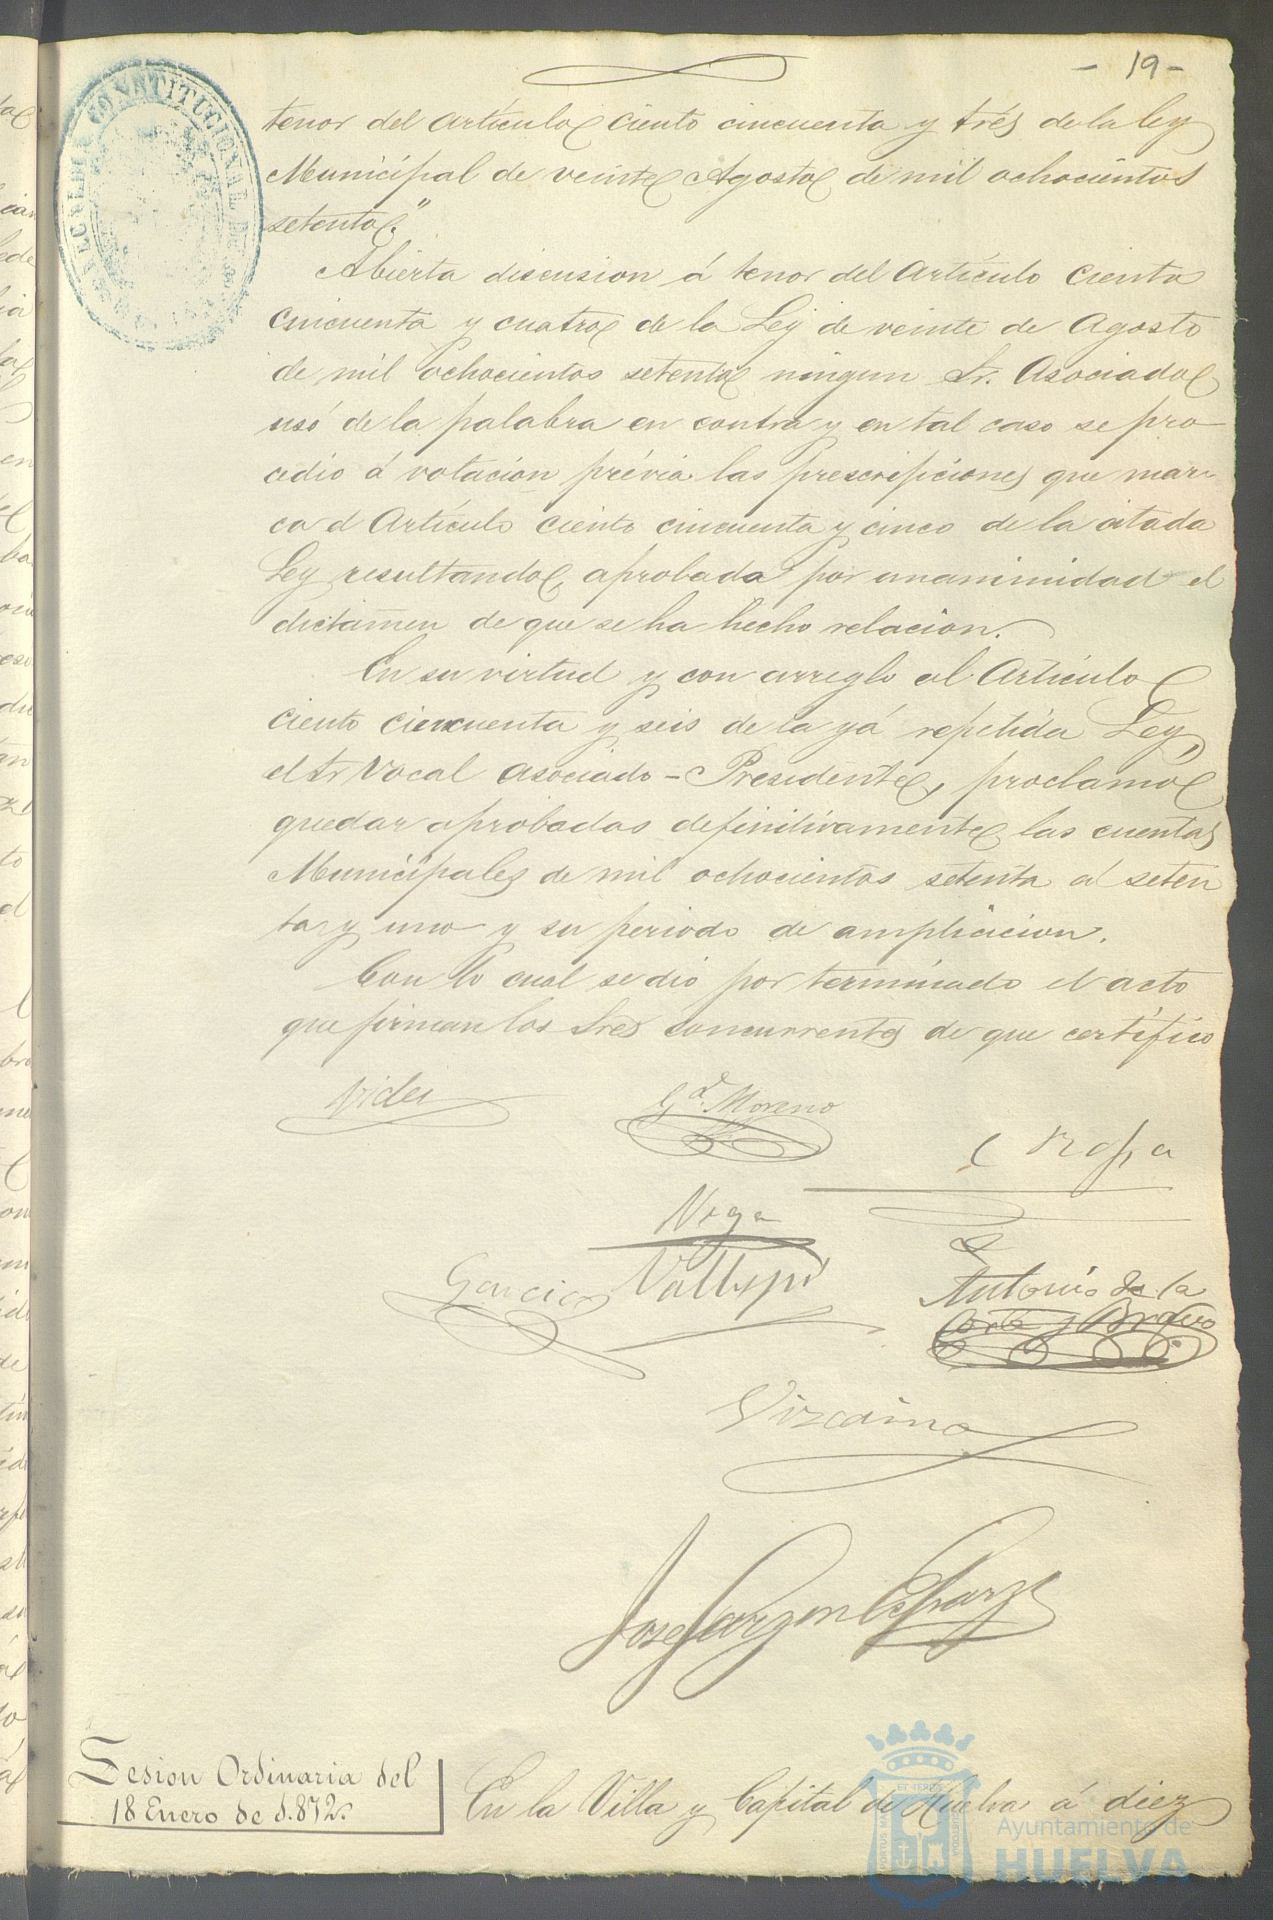 - 19 -
tenor del artículo ciento cincuenta y trés de la ley
Municipal de veinte Agosto de mil ochocientos
setenta."
Abierta discusion á tenor del Artículo ciento
cincuenta y cuatro de la Ley de veinte de Agosto
de mil ochocientos setenta ningun Sr. Asociado
usó de la palabra en contra y en tal caso se pro-
cedio á votacion prévia las prescripciones que mar-
ca el Artículo ciento cincuenta y cinco de la citada
Ley resultando aprobada por unanimidad el
dictámen de que se ha hecho relacion.
En su virtud y con arreglo al Artículo
ciento cincuenta y seis de la yá repetida Ley,
el Sr Vocal asociado - Presidente, proclamó
quedar aprobadas definitivamente las cuentas
Municipales de mil ochocientos setenta al seten
ta y uno y su periodo de ampliacion.
Con lo cual se dió por terminado el acto
que firman los Sres concurrentes de que certifico
Gª. Moreno
Vega
Garcia Vallespi
Antonio de la
Corte y Bravo
Vizcaino
Jose Garzon
Sesion Ordinaria del
18 Enero de 1.872.
En la Villa y Capital de Huelva á diez
CONSTITUCIONAL DE
Ayuntamiento de
HUELVA